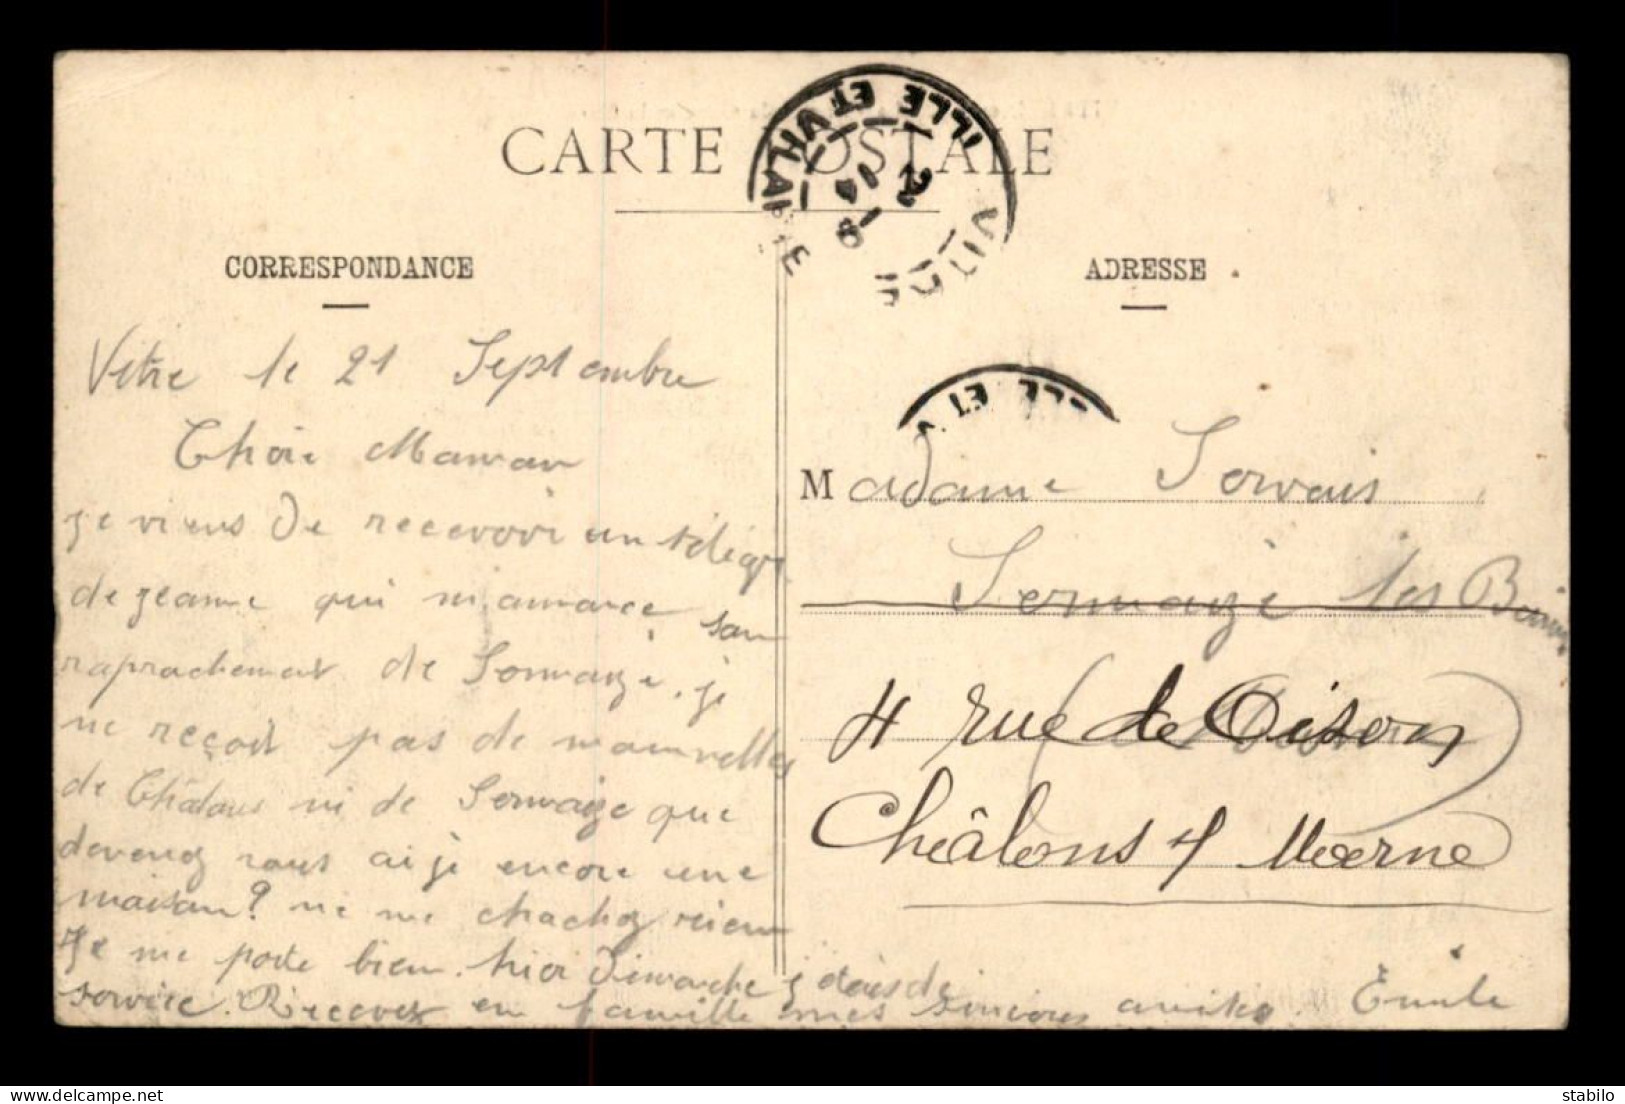 CARTE POSTALE
ILLE ET VILAINE
VITRÉ
CORRESPONDANCE
ADRESSE
Vitre le 21 Septembre
Chére Maman
je viens de recevoir un télégr
de jeanne qui m'amonce son
raprochement de Sermaize. je
ne reçoit pas de nouvelles
de Châlons ni de Sermaize que
devenez vous ai je encore une
maison? ne me chachez rien
Je me porte bien. hier Dimanche j étais de
service. Recevez en famille mes sincères amitiés. Émile
ILLE ET V
Madame Servais
Sermaize les Bains
4 rue de Oison
Châlons s/ Marne
stabilo
www.delcampe.net